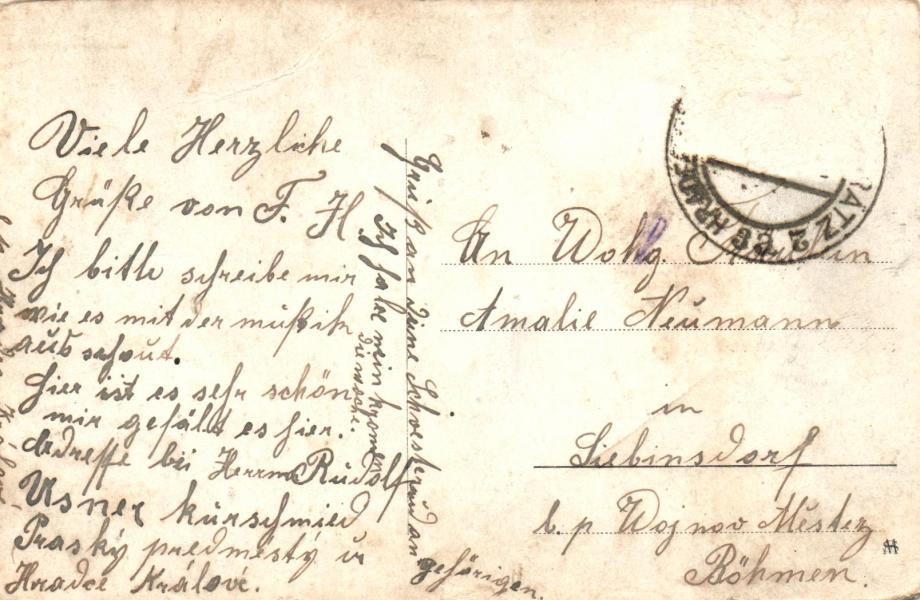 Viele Herzliche
Grüße von F. H
Ich bitte schreibe mir
wie es mit der mußik
aus schaut.
hier ist es sehr schön
mir gefällt es hier.
Adresse bei Herrn Rudolf
Usner kurschmied
Praský predmésty u
Hradce Králové.
Gruß an deine Schwester und an
gehörigen.
Ich habe mein kommen
die woche.
ÄTZ 2 HRADE
An Wohlg.
Amalie Neumann
in
Siebinsdorf
b. p Wojnov Méstez
Böhmen.